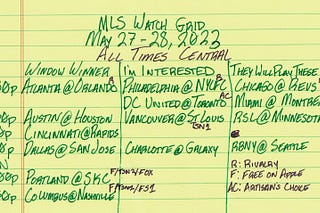 MLS WATCH GRID
MAY 27-28, 2023
ALL TIMES CENTRAL
WINDOW WINNER I'M INTERESTED THEY WILL PLAY THESE
ATLANTA @ ORLANDO R PHILADELPHIA @ NYCFC R CHICAGO @ REVS
DC UNITED @ TORONTO AC MIAMI @ MONTRE
AUSTIN @ HOUSTON VANCOUVER @ ST LOUIS RSL @ MINNESOTA
CINCINNATI @ RAPIDS
DALLAS @ SAN JOSE CHARLOTTE @ GALAXY RBNY @ SEATTLE
R: RIVALRY
PORTLAND @ SKC F/FOX F: FREE ON APPLE
COLUMBUS @ NASHVILLE F/FS1 AC: ARTISAN'S CHOICE